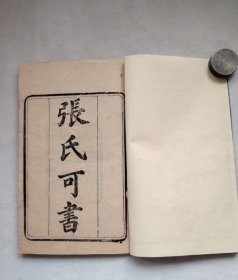 張氏可書